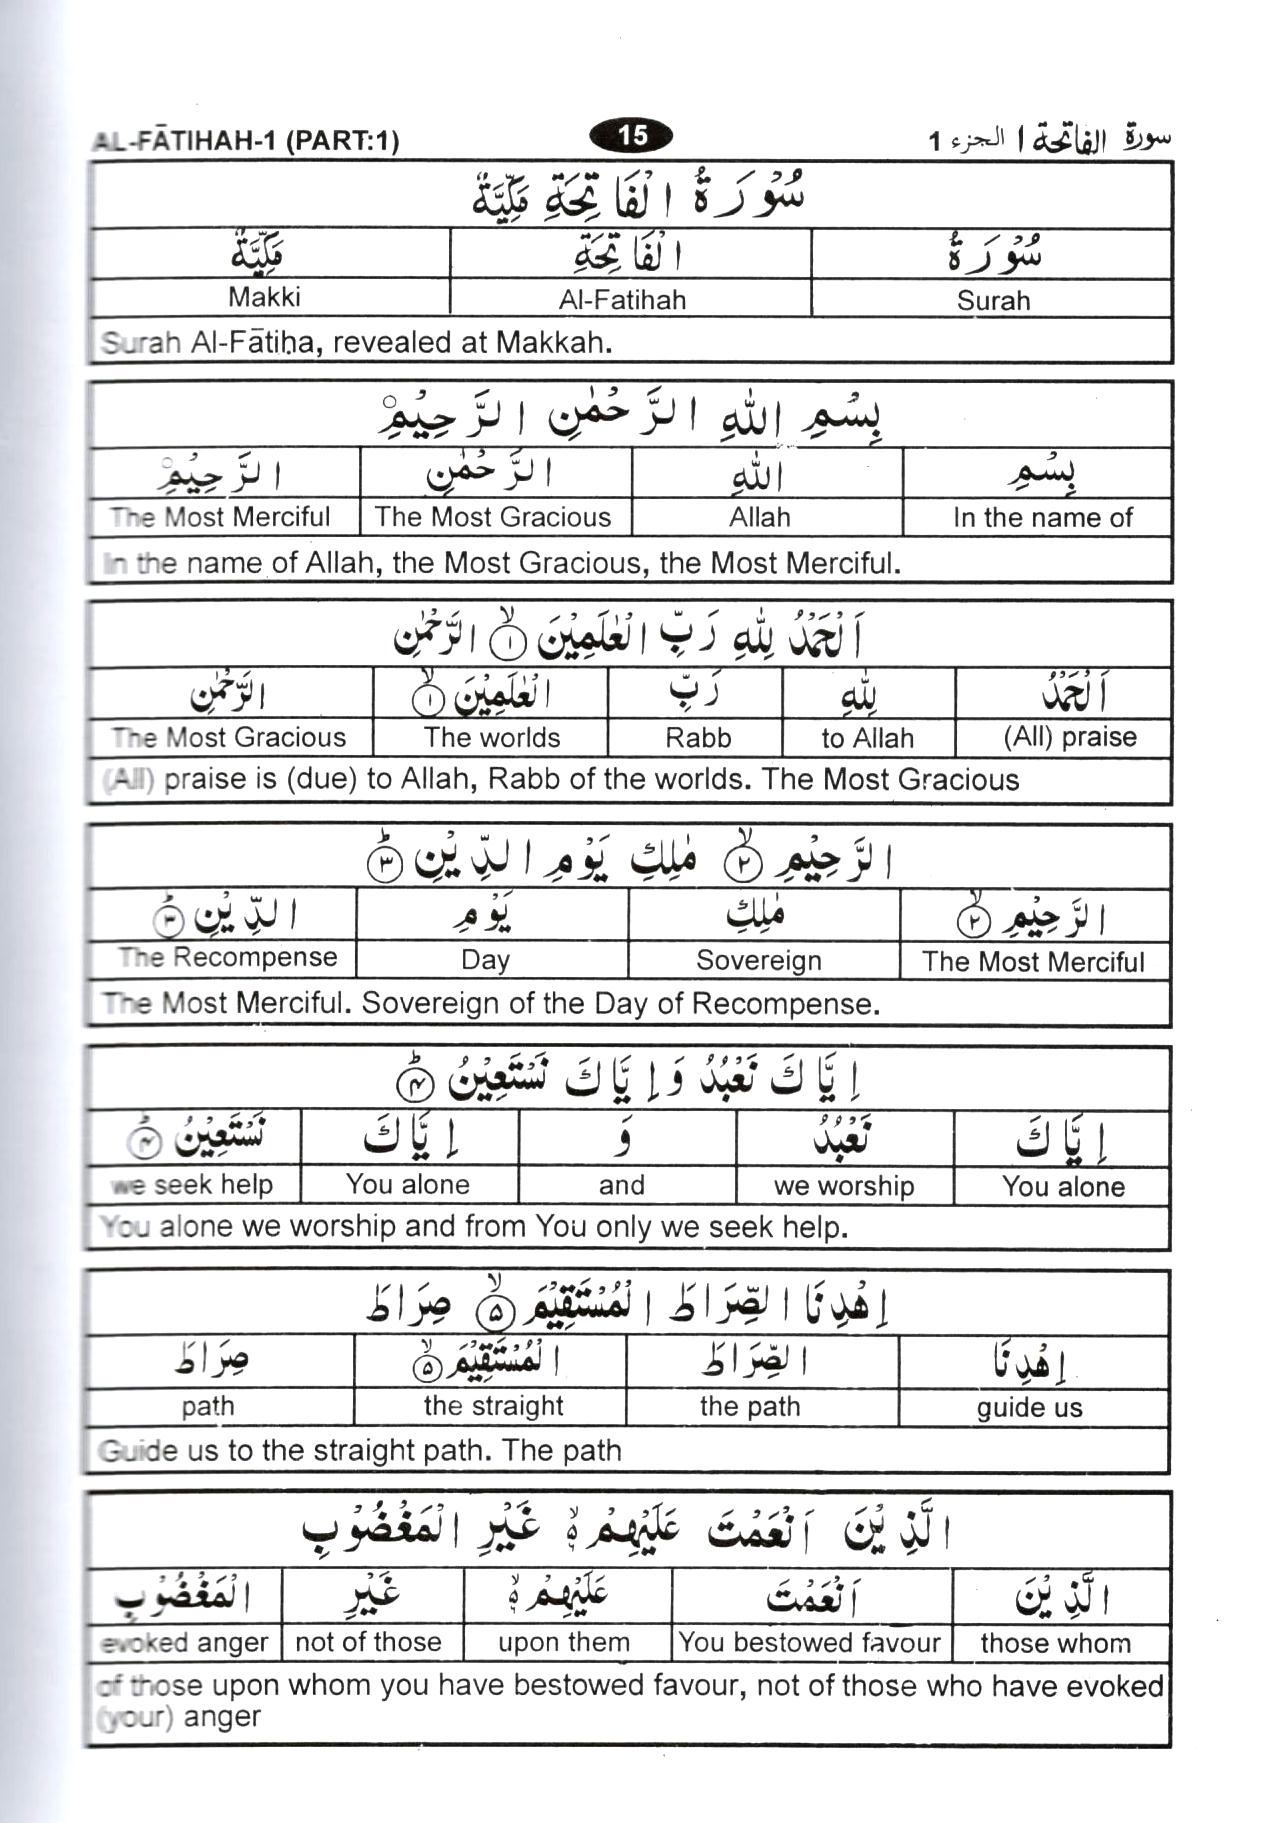 AL-FĀTIHAH-1 (PART:1) 15 سورة الفاتحة ١ الجزء 1
سُوْرَةُ الْفَاتِحَةِ مَكِّيَّةٌ
سُوْرَةُ الْفَاتِحَةِ مَكِّيَّةٌ
Surah Al-Fatihah Makki
Surah Al-Fātiḥa, revealed at Makkah.
بِسْمِ اللّٰهِ الرَّحْمٰنِ الرَّحِيْمِ۝
بِسْمِ اللّٰهِ الرَّحْمٰنِ الرَّحِيْمِ۝
In the name of Allah The Most Gracious The Most Merciful
In the name of Allah, the Most Gracious, the Most Merciful.
اَلْحَمْدُ لِلّٰهِ رَبِّ الْعٰلَمِيْنَ ۙ﴿۱﴾ الرَّحْمٰنِ
اَلْحَمْدُ لِلّٰهِ رَبِّ الْعٰلَمِيْنَ ۙ﴿۱﴾ الرَّحْمٰنِ
(All) praise to Allah Rabb The worlds The Most Gracious
(All) praise is (due) to Allah, Rabb of the worlds. The Most Gracious
الرَّحِيْمِ ۙ﴿۲﴾ مٰلِكِ يَوْمِ الدِّيْنِ ؕ﴿۳﴾
الرَّحِيْمِ ۙ﴿۲﴾ مٰلِكِ يَوْمِ الدِّيْنِ ؕ﴿۳﴾
The Most Merciful Sovereign Day The Recompense
The Most Merciful. Sovereign of the Day of Recompense.
اِيَّاكَ نَعْبُدُ وَاِيَّاكَ نَسْتَعِيْنُ ؕ﴿۴﴾
اِيَّاكَ نَعْبُدُ وَ اِيَّاكَ نَسْتَعِيْنُ ؕ﴿۴﴾
You alone we worship and You alone we seek help
You alone we worship and from You only we seek help.
اِهْدِنَا الصِّرَاطَ الْمُسْتَقِيْمَ ۙ﴿۵﴾ صِرَاطَ
اِهْدِنَا الصِّرَاطَ الْمُسْتَقِيْمَ ۙ﴿۵﴾ صِرَاطَ
guide us the path the straight path
Guide us to the straight path. The path
الَّذِيْنَ اَنْعَمْتَ عَلَيْهِمْ ۙ۬ غَيْرِ الْمَغْضُوْبِ
الَّذِيْنَ اَنْعَمْتَ عَلَيْهِمْ ۙ۬ غَيْرِ الْمَغْضُوْبِ
those whom You bestowed favour upon them not of those evoked anger
of those upon whom you have bestowed favour, not of those who have evoked
(your) anger